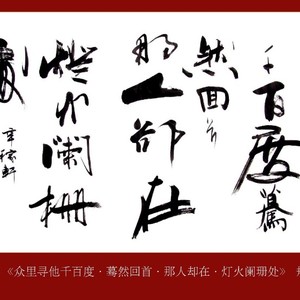 千百度驀
然回首
那人卻在
燈火闌珊
處
辛稼軒
《众里寻他千百度·蓦然回首·那人却在·灯火阑珊处》